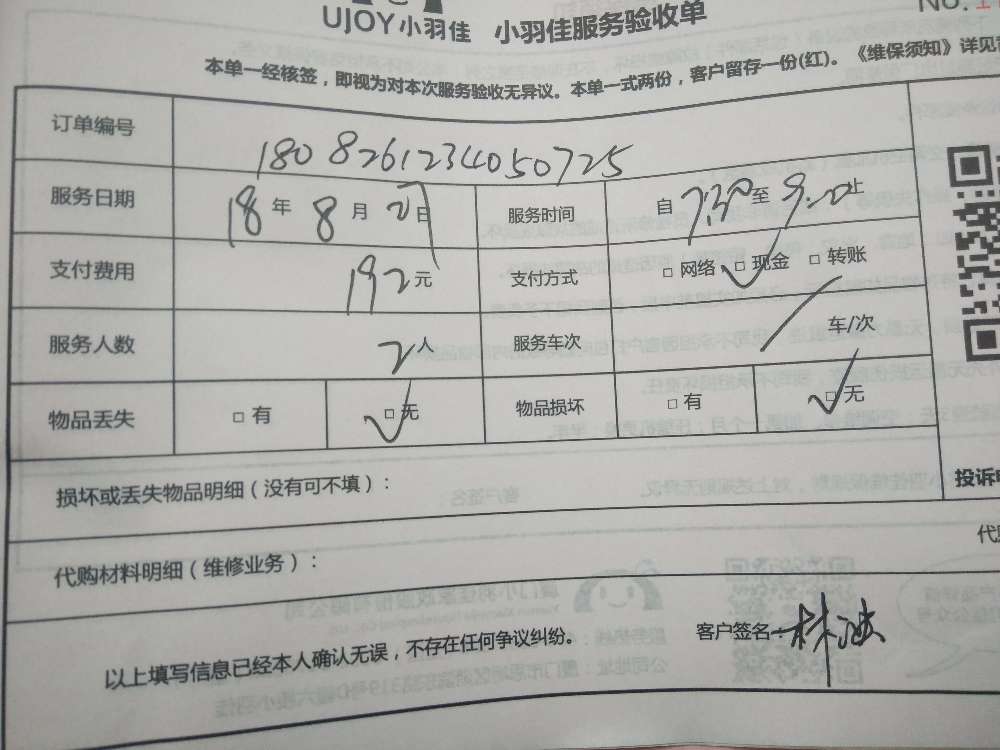 NO.1
UJOY小羽佳 小羽佳服务验收单
本单一经核签，即视为对本次服务验收无异议。本单一式两份，客户留存一份(红)。《维保须知》详见背
订单编号 1808261234050725
服务日期 18年 8月 27日 服务时间 自 7:30 至 9:00 止
支付费用 192元 支付方式 □网络 □现金 □转账
服务人数 2人 服务车次 / 车/次
物品丢失 □有 □无 物品损坏 □有 □无
损坏或丢失物品明细（没有可不填）：
投诉
代购材料明细（维修业务）：
代购
以上填写信息已经本人确认无误，不存在任何争议纠纷。 客户签名：林